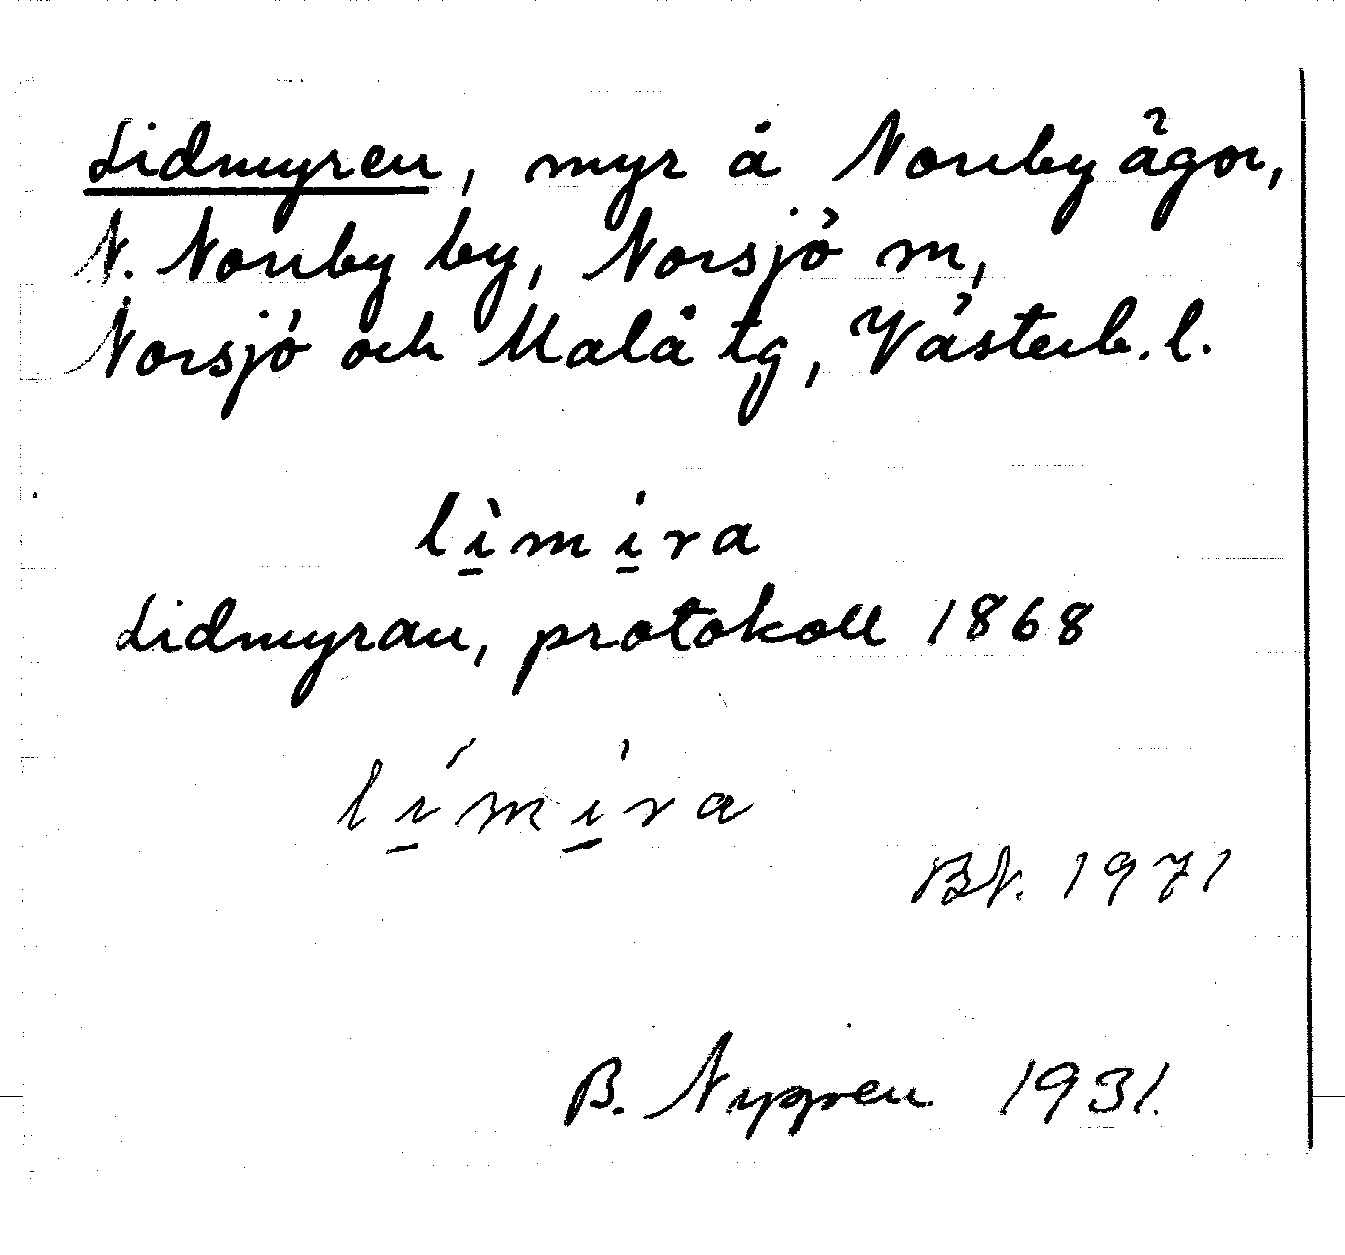 Lidmyren, myr å Norrbyägor,
N. Norrby by, Norsjö sn,
Norsjö och Malå tg, Västerb. l.
lìmi̇ra
Lidmyran, protokoll 1868
límíra
BN. 1971
B. Nygren 1931.